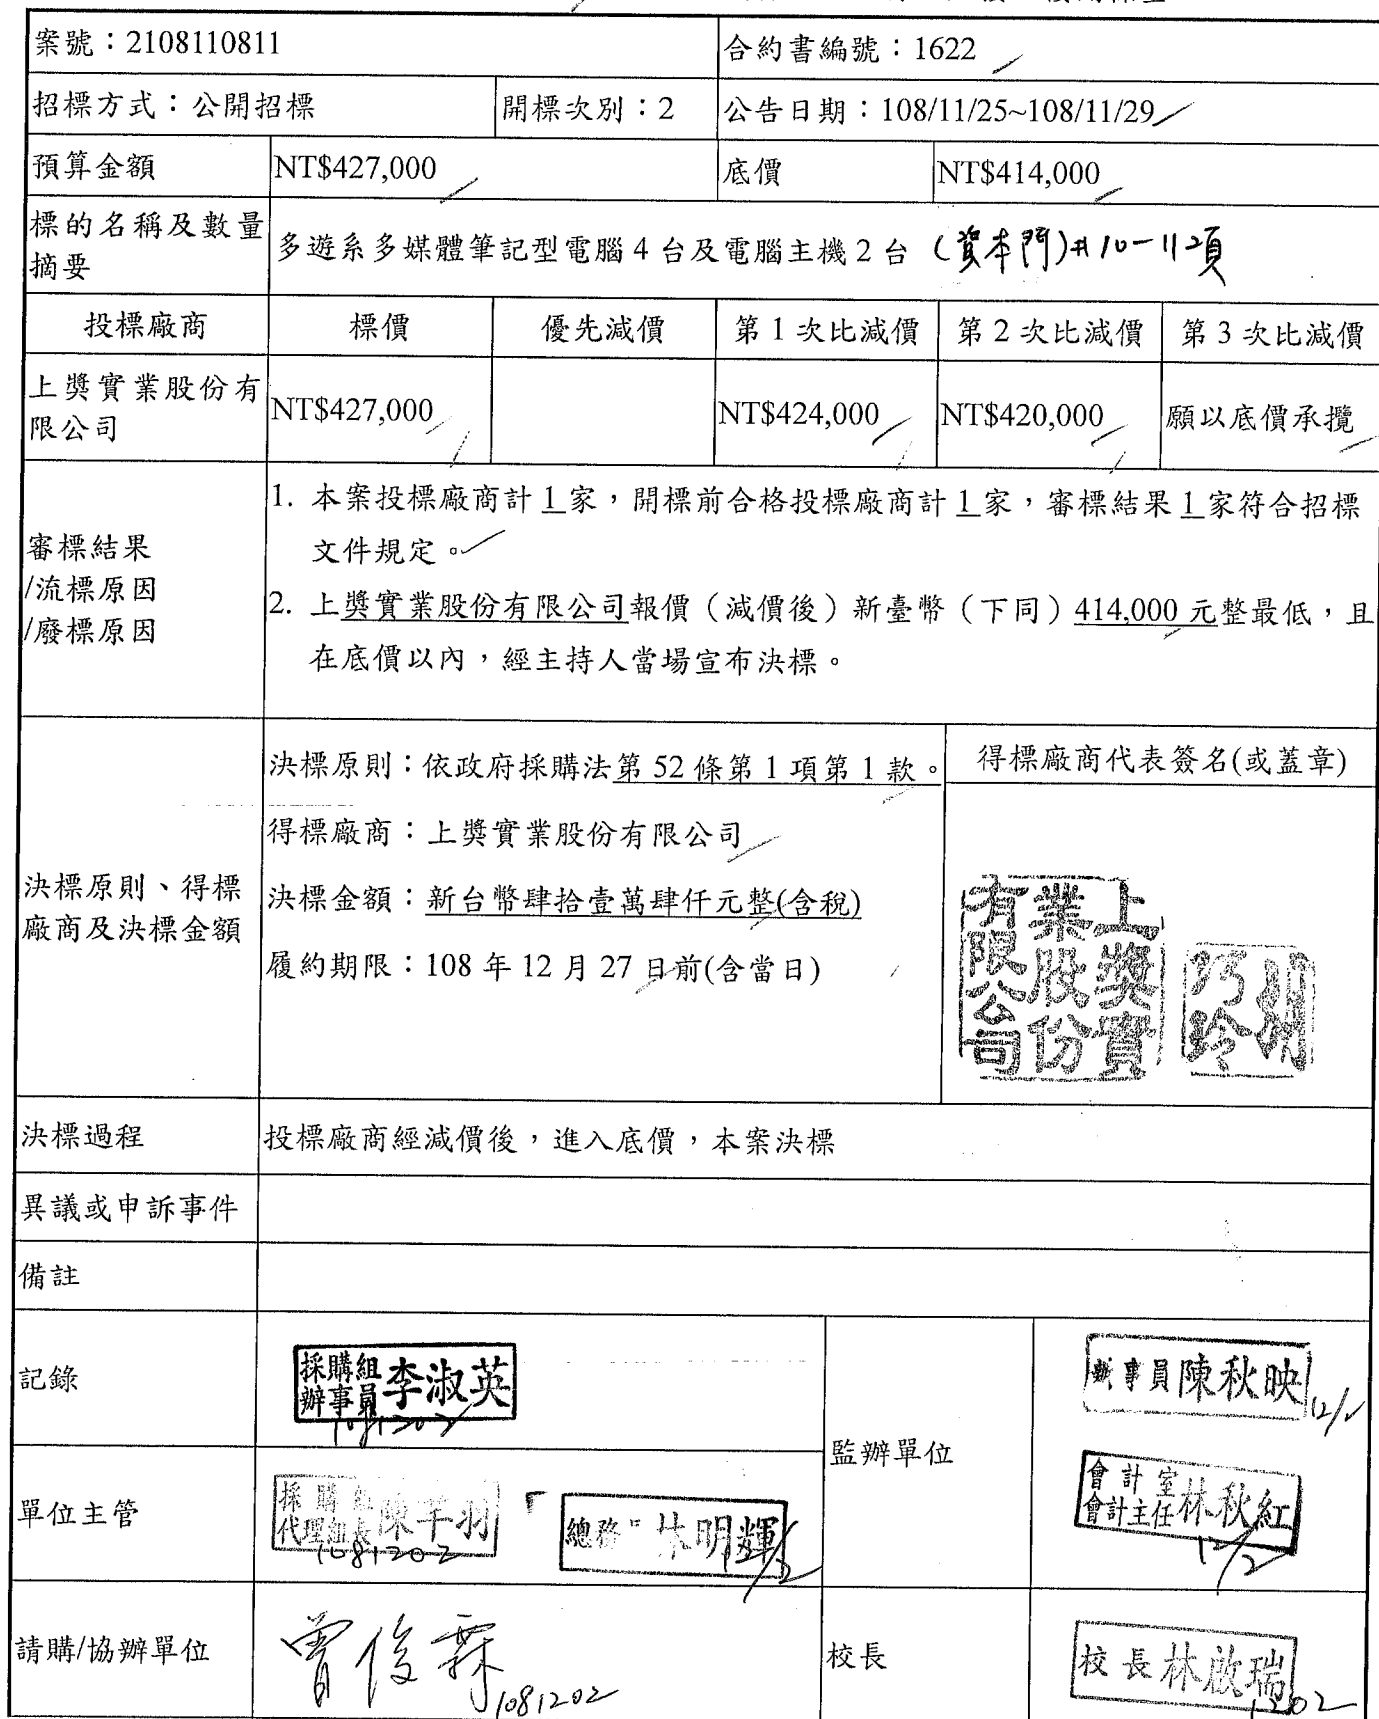 案號：2108110811
合約書編號：1622
招標方式：公開招標
開標次別：2
公告日期：108/11/25~108/11/29
預算金額
NT$427,000
底價
NT$414,000
標的名稱及數量
摘要
多遊系多媒體筆記型電腦 4 台及電腦主機 2 台 (資本門)#10-11項
投標廠商
標價
優先減價
第 1 次比減價
第 2 次比減價
第 3 次比減價
上獎實業股份有
限公司
NT$427,000
NT$424,000
NT$420,000
願以底價承攬
審標結果
/流標原因
/廢標原因
1. 本案投標廠商計 1 家，開標前合格投標廠商計 1 家，審標結果 1 家符合招標
文件規定。
2. 上獎實業股份有限公司報價（減價後）新臺幣（下同）414,000 元整最低，且
在底價以內，經主持人當場宣布決標。
決標原則、得標
廠商及決標金額
決標原則：依政府採購法第 52 條第 1 項第 1 款。
得標廠商：上獎實業股份有限公司
決標金額：新台幣肆拾壹萬肆仟元整(含稅)
履約期限：108 年 12 月 27 日前(含當日)
得標廠商代表簽名(或蓋章)
上獎實
業股份
有限公司
巧玲
決標過程
投標廠商經減價後，進入底價，本案決標
異議或申訴事件
備註
記錄
採購組
辦事員 李淑英
1081202
監辦單位
事員陳秋映
單位主管
採購
代理組長 陳芊羽
1081202
總務 林明輝
12/2
會計室
會計主任 林秋紅
12/2
請購/協辦單位
曾俊霖
1081202
校長
校長林啟瑞
1202